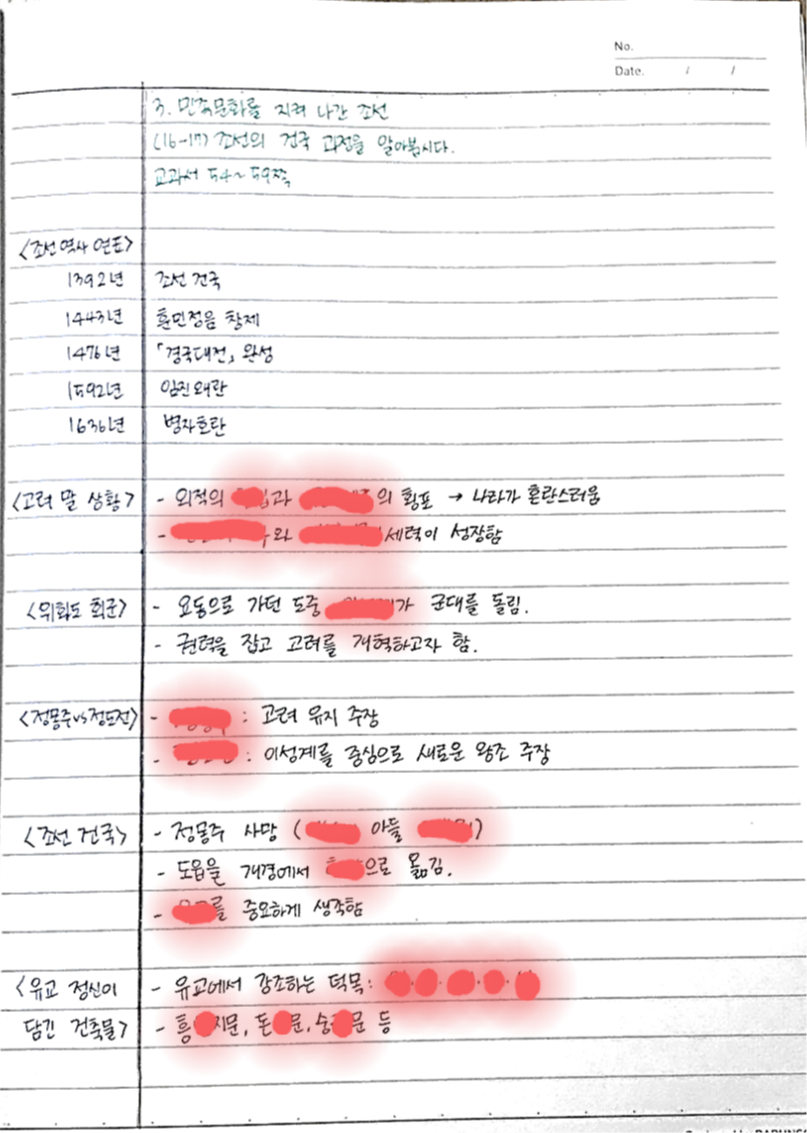 No.
Date. / /
3. 민족문화를 지켜 나간 조선
(16-17) 조선의 건국 과정을 알아봅시다.
교과서 54~59쪽
<조선 역사 연표>
1392년 조선 건국
1443년 훈민정음 창제
1476년 「경국대전」 완성
1592년 임진왜란
1636년 병자호란
<고려 말 상황> - 외적의 과 의 횡포 → 나라가 혼란스러움
- 와 세력이 성장함
<위화도 회군> - 요동으로 가던 도중 가 군대를 돌림.
- 권력을 잡고 고려를 개혁하고자 함.
<정몽주vs정도전> - : 고려 유지 주장
- : 이성계를 중심으로 새로운 왕조 주장
<조선 건국> - 정몽주 사망 ( 아들 )
- 도읍을 개경에서 으로 옮김.
- 를 중요하게 생각함
<유교 정신이 - 유교에서 강조하는 덕목:
담긴 건축물> - 흥 지문, 돈 문, 숭 문 등